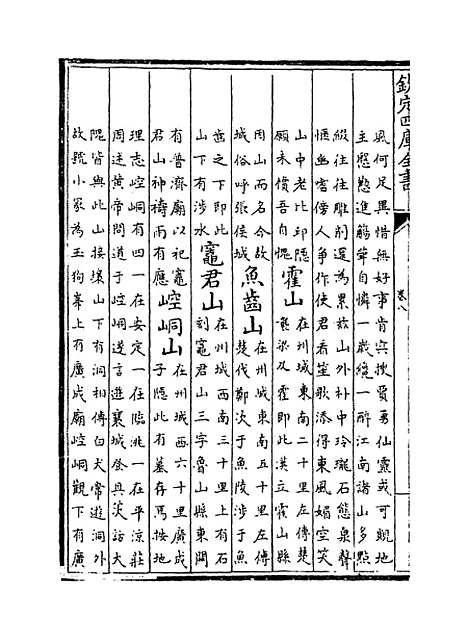 欽定四庫全書
卷八
風何足異惜無好事肯與搜賈勇仙靈或可覬地
主慇懃進觴酌自憐一歲纔一醉江南諸山多點
綴往往雕剜還為累茲山外朴中玲瓏石態泉聲
愜幽嗜傍人爭作使君看笙歌添得東風媚空笑
山中老比邱隱
願未償吾自愧
霍山
在州城東南二十里左傳楚
襲梁及霍即此漢立霍山縣
因山而名今故
城俗呼張侯城
魚齒山
在州城東南五十里左傳
楚伐鄭次于魚陵涉于魚
齒之下即此
山下有涉水
竈君山
在州城西南三十里上有石
刻竈君山三字魯山縣東關
有普濟廟以祀竈
君山神禱雨有應
崆峒山
在州城西六十里廣成
子隱此有墓存焉按地
理志崆峒有四一在安定一在臨洮一在平涼莊
周述黃帝問道于崆峒遂言遊襄城登具茨訪大
隗皆與此山接壤山下有洞相傳白犬常遊洞外
故號小冢為玉狗峯上有廣成廟崆峒觀下有廣